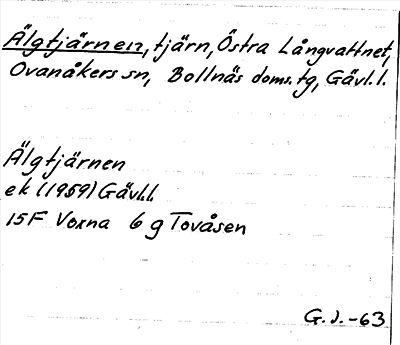 Älgtjärnen, tjärn, Östra Långvattnet,
Ovanåkers sn, Bollnäs doms.tg, Gävl.l.
Älgtjärnen
ek (1959) Gävl.l.
15F Voxna 6 g Tovåsen
G.J.-63